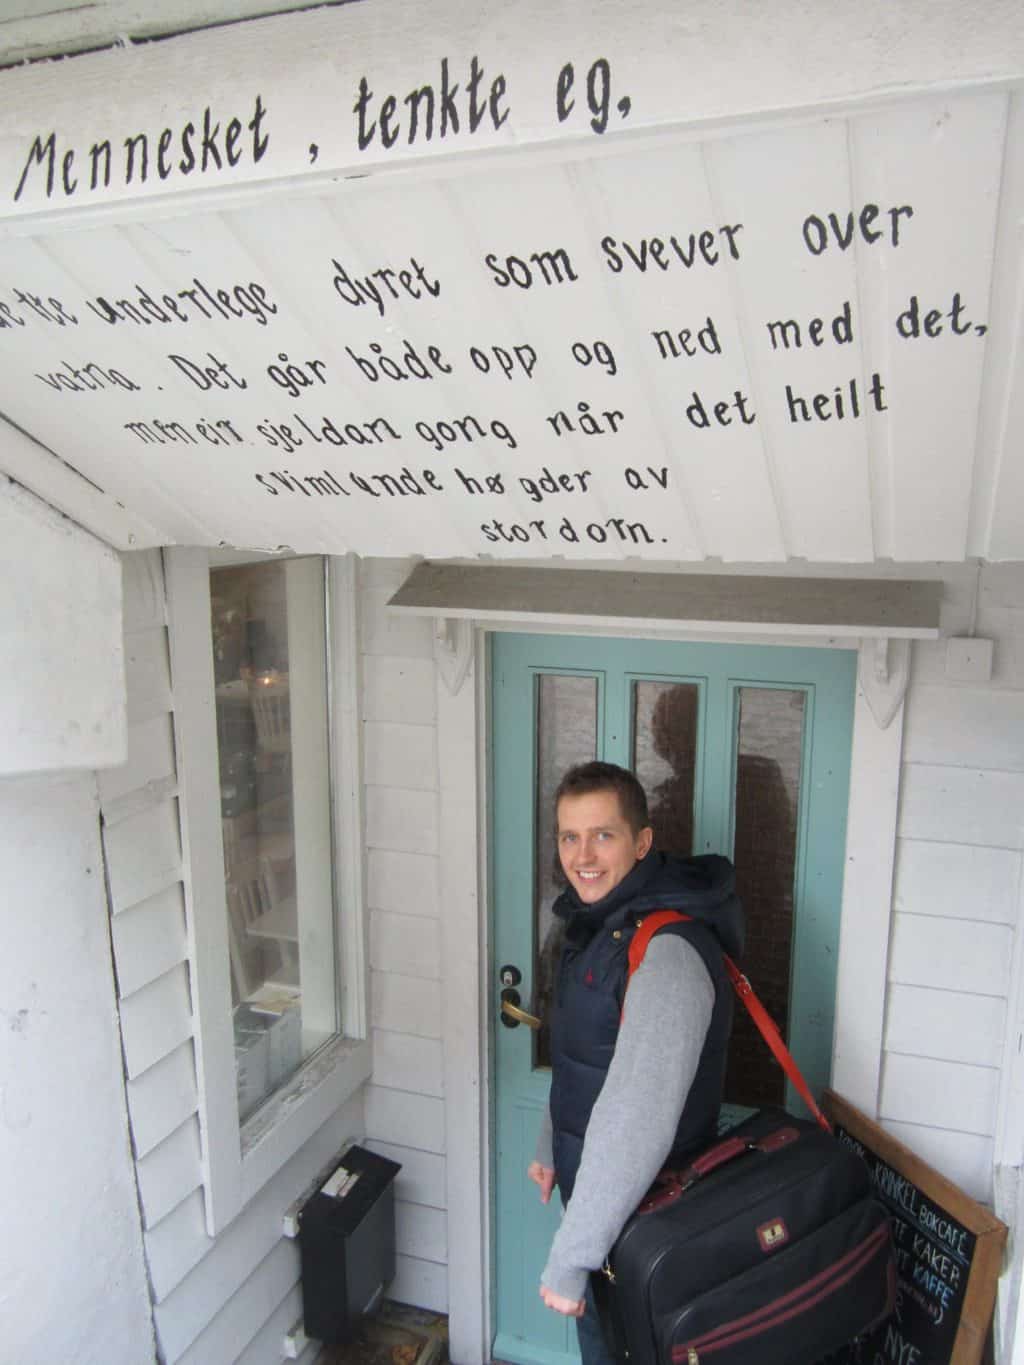 Mennesket, tenkte eg,
dette underlege dyret som svever over
vatna. Det går både opp og ned med det,
men ein sjeldan gong når det heilt
svimlande høgder av
stordom.
KRINKEL BOKCAFÉ
KAKER
KAFFE
NYE